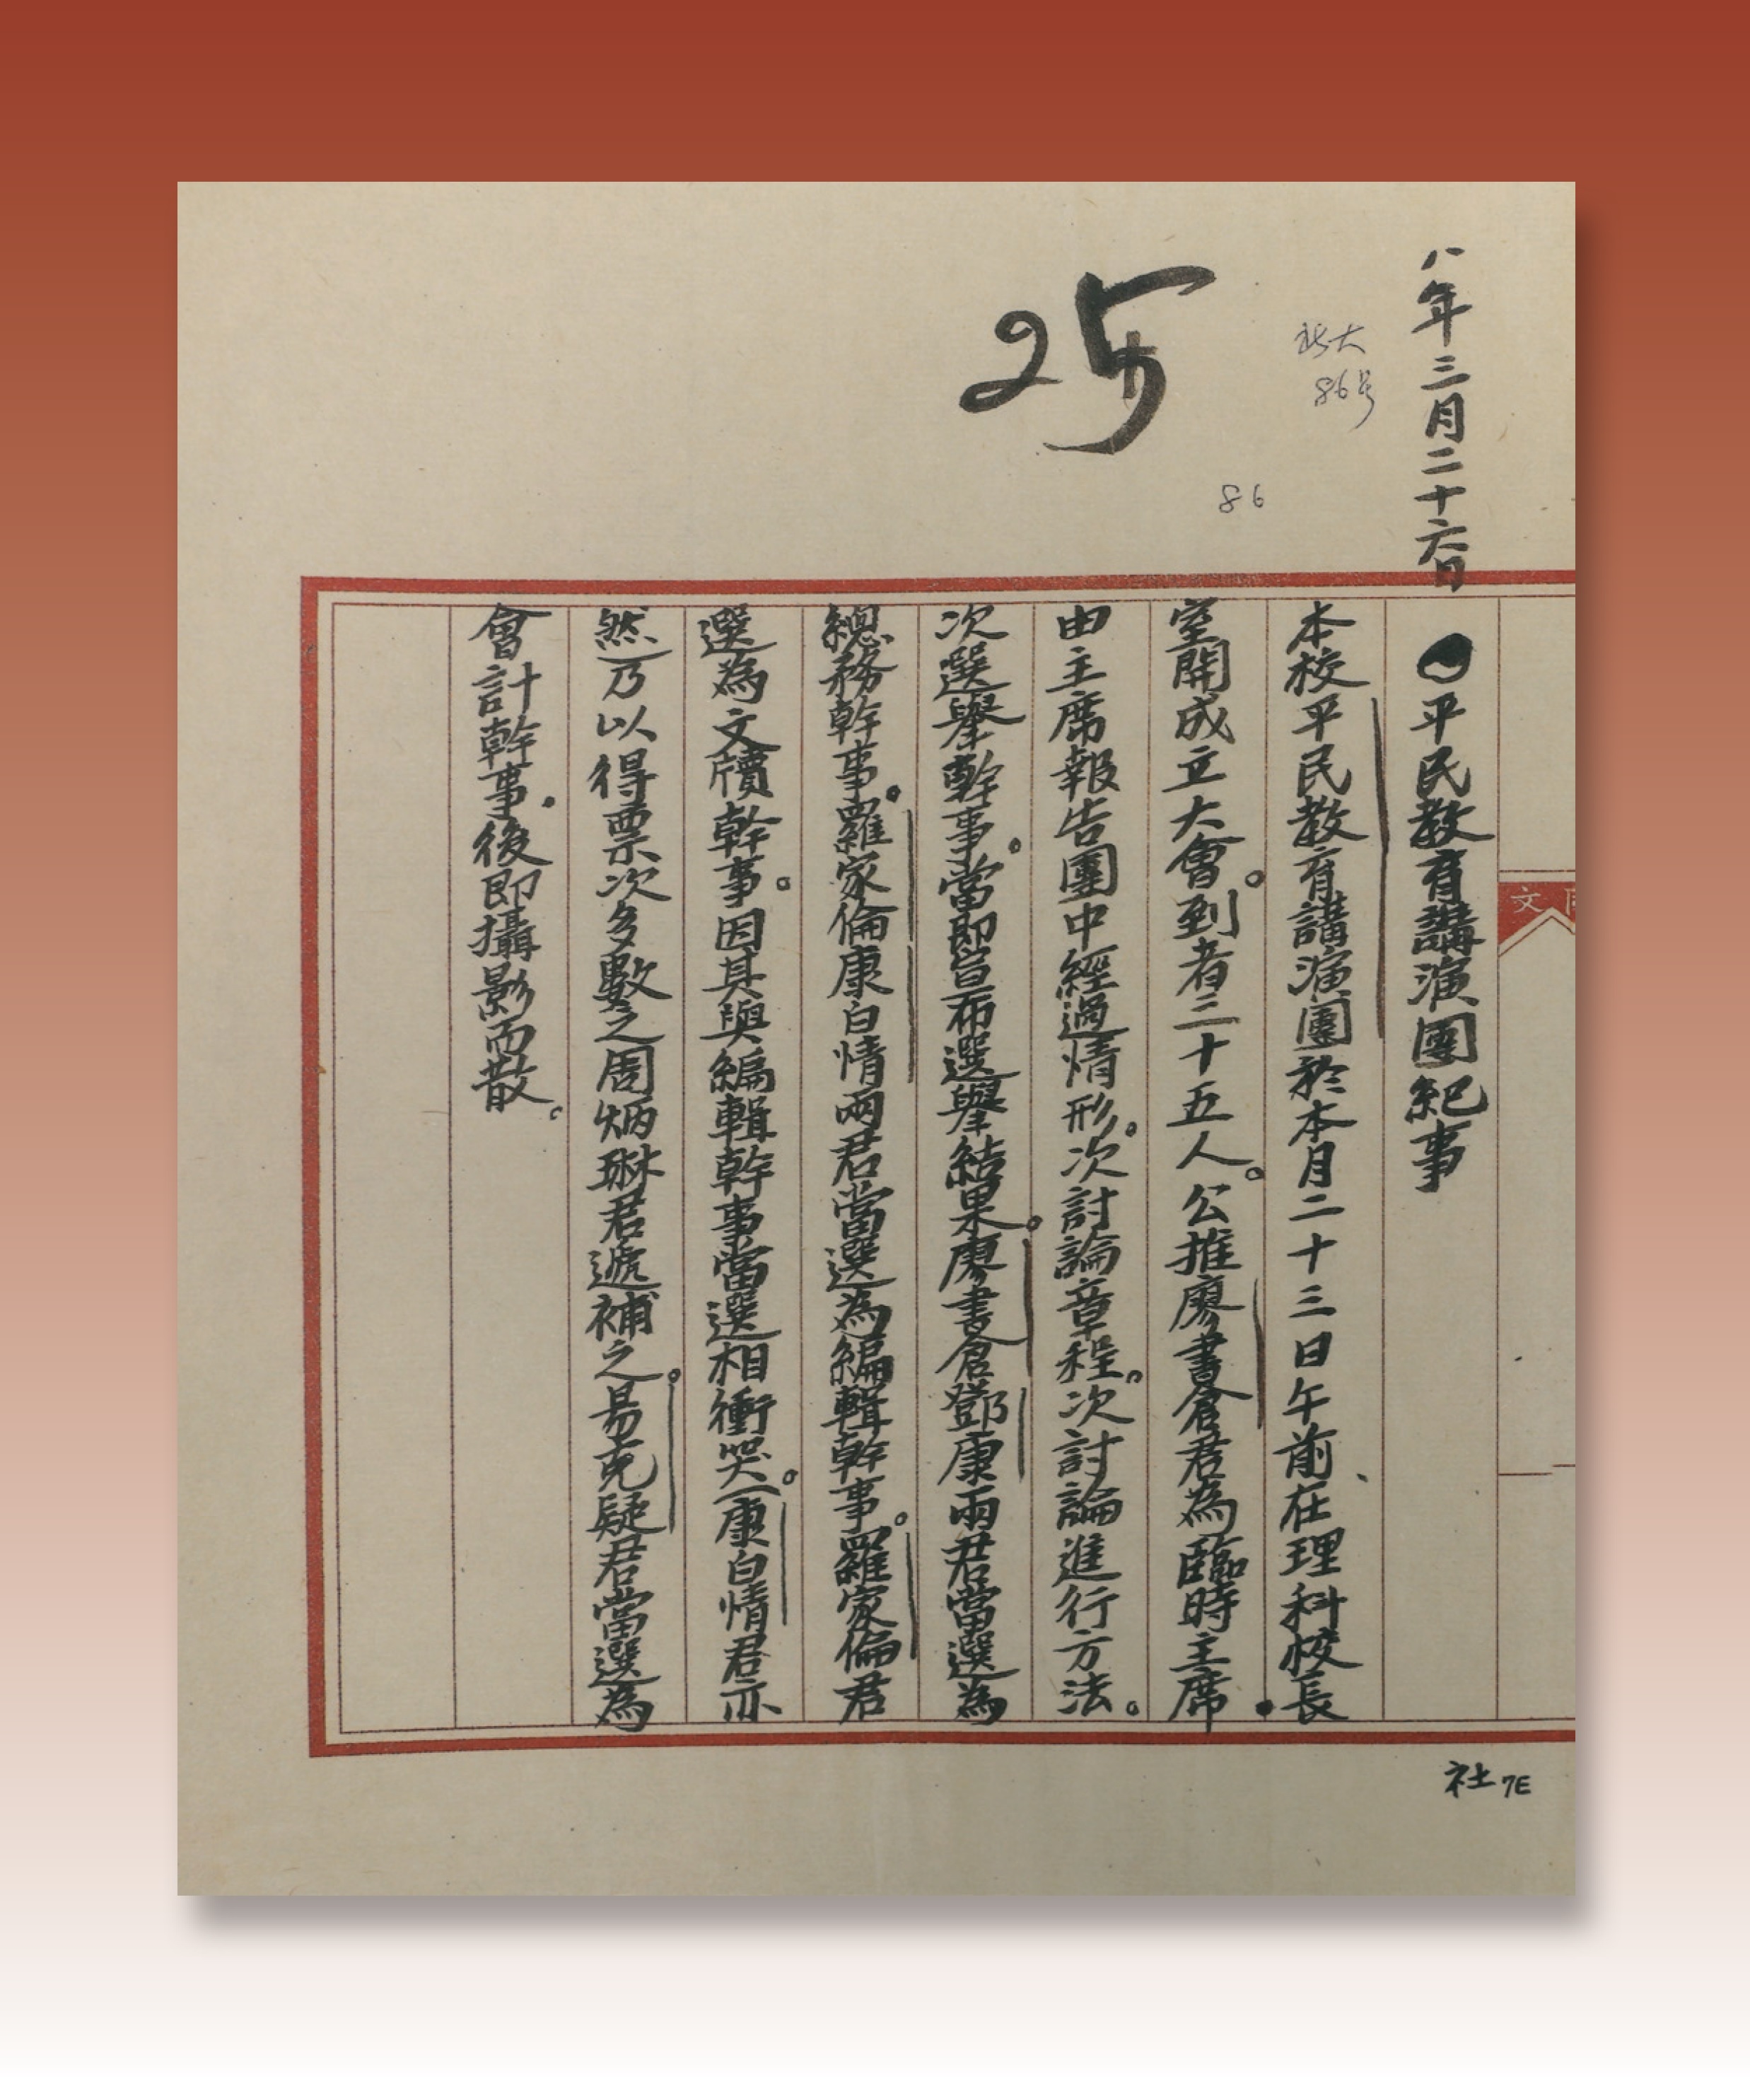 八年三月二十六日
北大
86号
25
86
●平民教育講演團紀事
本校平民教育講演團於本月二十三日午前在理科校長
室開成立大會。到者三十五人。公推廖書倉君為臨時主席。
由主席報告團中經過情形。次討論章程。次討論進行方法。
次選舉幹事。當即宣布選舉結果。廖書倉鄧康兩君當選為
總務幹事。羅家倫康白情兩君當選為編輯幹事。羅家倫君
選為文牘幹事。因其與編輯幹事當選相衝突。(康白情君亦
然)乃以得票次多數之周炳琳君遞補之。易克嶷君當選為
會計幹事。後即攝影而散。
文
社7E